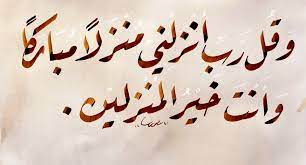 وَقُل رَبِّ أنزِلني منزلاً مبَاركاً
وَأنتَ خَيرُ المُنزلين .